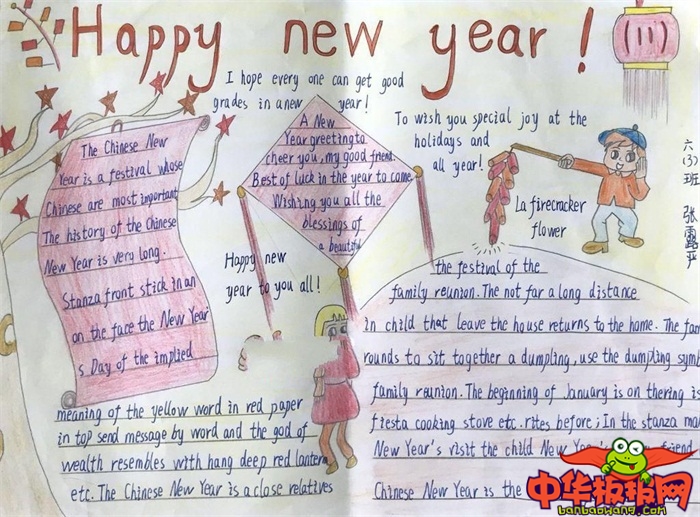 Happy new year!
I hope every one can get good
grades in a new year!
The Chinese New
Year is a festival whose
Chinese are most important
The history of the Chinese
New Year is very long.
Stanza front stick in an
on the face the New Year'
s Day of the implied
meaning of the yellow word in red paper
in top send message by word and the god of
wealth resembles with hang deep red lantern
etc. The Chinese New Year is a close relatives
A New
Year greeting to
cheer you, my good friend.
Best of luck in the year to come
Wishing you all the
blessings of
a beautiful
Happy new
year to you all!
To wish you special joy at the
holidays and
all year!
La firecracker
flower
六(3)班 张露平
the festival of the
family reunion. The not far a long distance
in child that leave the house returns to the home. The fam
rounds to sit together a dumpling, use the dumpling symb
family reunion. The beginning of January is on thering is
fiesta cooking stove etc. rites before; In the stanza ma
New Year's visit the child New Year' friend
Chinese New Year is the
中华板报网
banbaowang.com